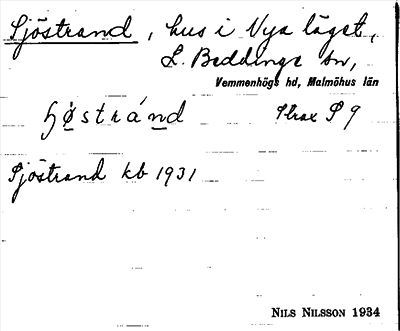 Sjöstrand, hus i Nya läget,
L. Beddinge sn,
Vemmenhögs hd, Malmöhus län
Sjöstrand kb 1931
NILS NILSSON 1934